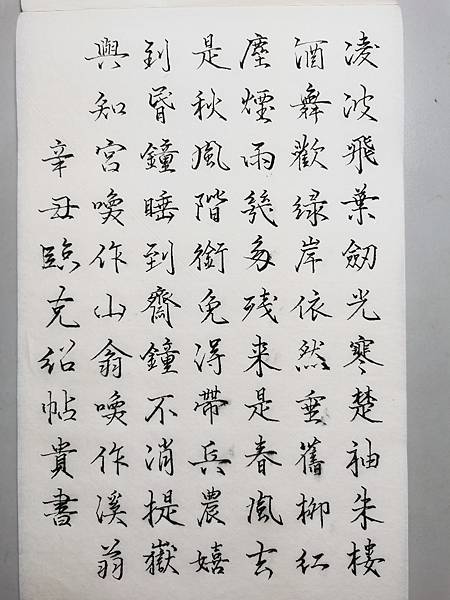 凌波飛葉劒光寒楚袖朱樓
酒舞歡绿岸依然垂舊柳红
塵煙雨幾多残来是春風去
是秋風階銜免得帶兵農嬉
到昏鐘睡到齋鐘不消提嶽
興知宮喚作山翁喚作溪翁
辛丑臨克紹帖貴書